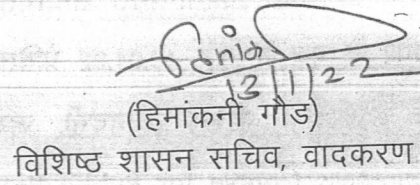 13/1/22
(हिमांकनी गौड)
विशिष्ठ शासन सचिव, वादकरण